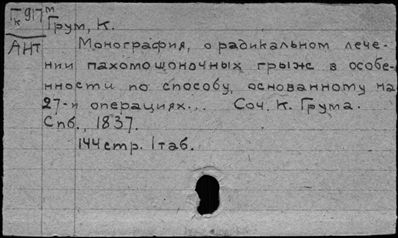 Гк 917м
Грум, К.
АНТ
Монография, о радикальном лече-
нии пахомошоночных грыж в особе-
нности по способу, основанному на
27-и операциях... Соч. К. Грума.
Спб., 1837.
144 стр. 1 таб.